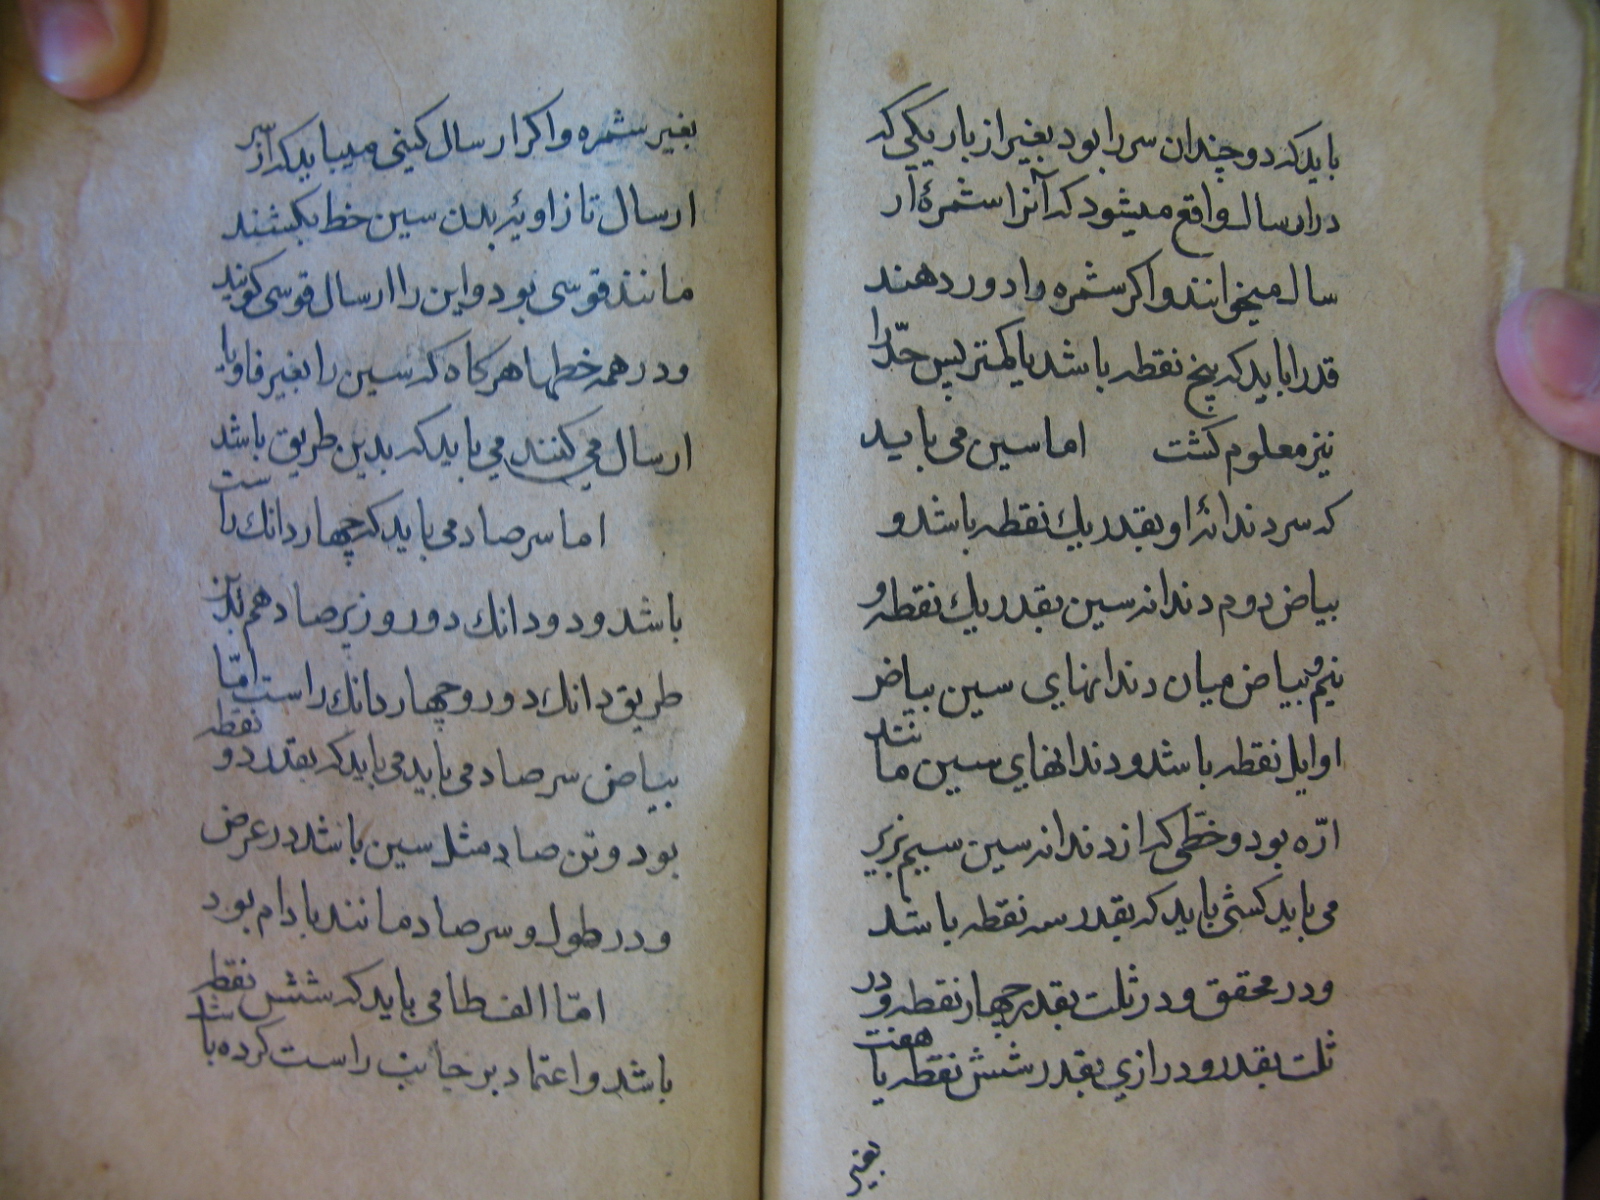 باید که دو چندان سر را بود بغیر از باریکی که
در ارسال واقع میشود که آنرا شمرهٔ ار
سال میخوانند و اکر شمره را دور دهند
قدر را باید که پنج نقطه باشد یا کمتر پس حدّ را
نیز معلوم کشت اما سین می باید
که سر دندانهٔ او بقدر یك نقطه باشد و
بیاض دوم دندانه سین بقدر یك نقطه و
نیم و بیاض میان دندانهای سین بیاض
اوایل نقطه باشد و دندانهای سین مانند
ارّه بود و خطّی که از دندانه سین سیم بزیر
می باید کشی باید که بقدر سه نقطه باشد
و در محقق و در ثلت بقدر چهار نقطه و در
ثلت بقدر و درازی بقدر شش نقطه یا هفت
بغیر
بغیر شمره و اکر ارسال کنی میباید که از سر
ارسال تا زاویهٔ بدن سین خط بکشند
مانند قوسی بود و این را ارسال قوسی کویند
و در همه خطها هرکاه که سین را بغیر فا و یا
ارسال می کنند می باید که بدین طریق باشد
اما سر صاد می باید که چهار دانك راست
باشد و دو دانك دور و زیر صاد هم بدان
طریق دانك دور و چهار دانك راست امّا
بیاض سر صاد می باید می باید که بقدر دو نقطه
بود و تن صاد مثل سین باشد در عرض
و در طول و سر صاد مانند بادام بود
امّا الف طا می باید که شش نقطه
باشد و اعتماد بر جانب راست کرده باشد